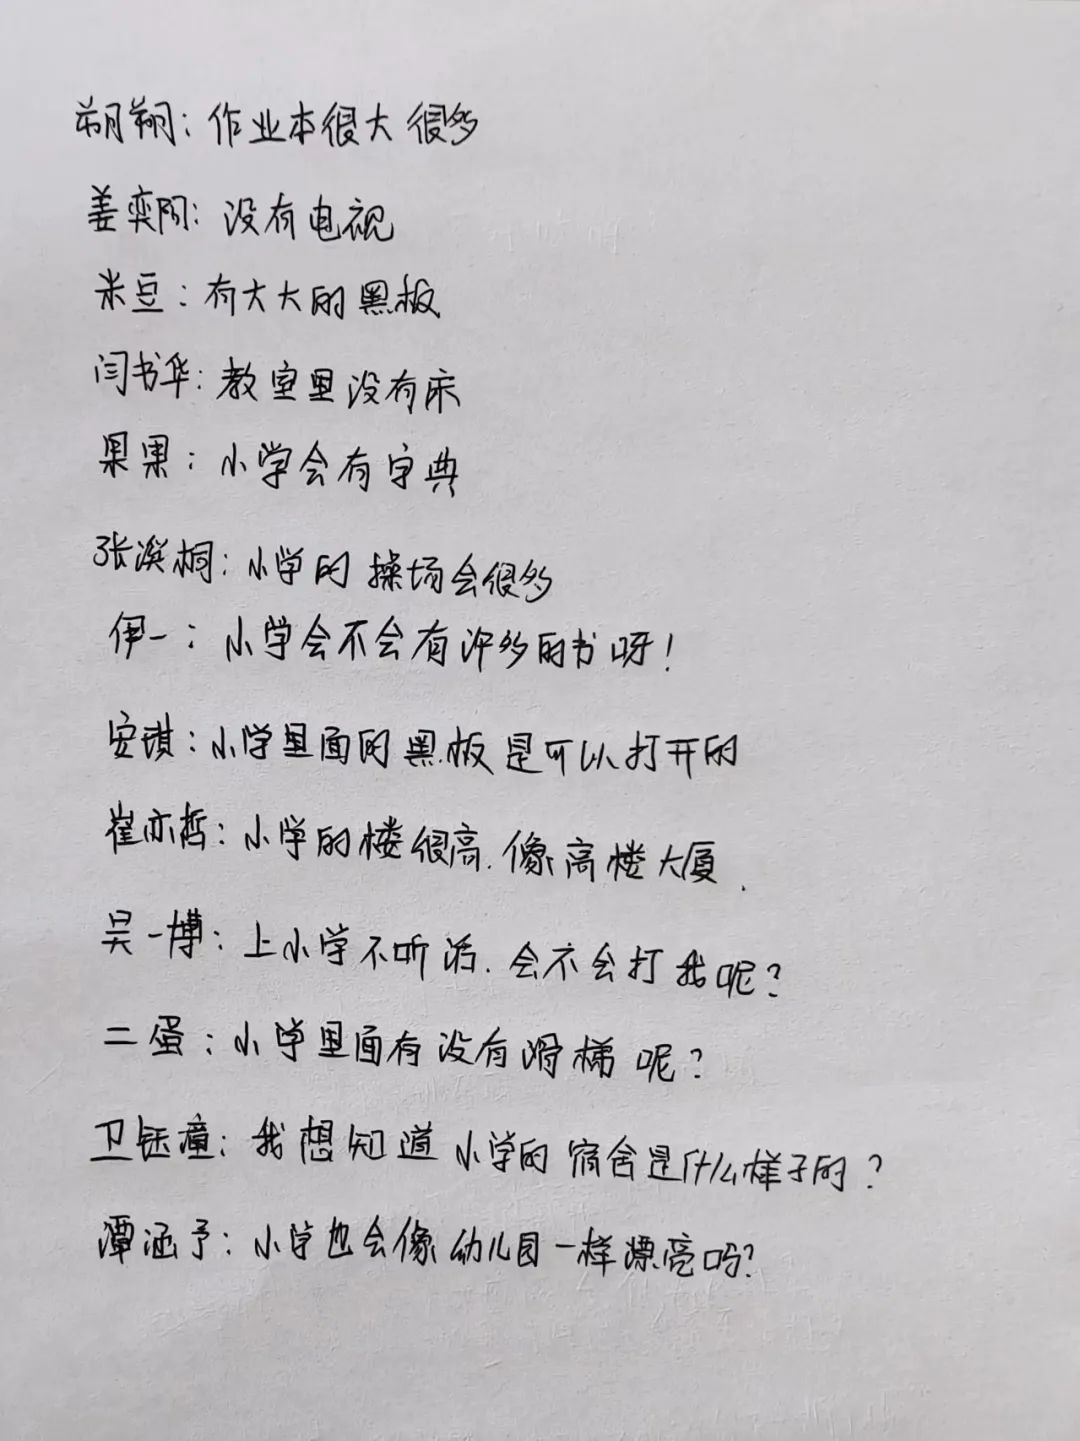 朔朔：作业本很大很多
姜奕阿：没有电视
米豆：有大大的黑板
闫书华：教室里没有床
果果：小学会有字典
张溪桐：小学的操场会很多
伊一：小学会不会有许多的书呀！
安琪：小学里面的黑板是可以打开的
崔亦哲：小学的楼很高.像高楼大厦.
吴一博：上小学不听话.会不会打我呢？
二蛋：小学里面有没有滑梯呢？
卫钰潼：我想知道小学的宿舍是什么样子的？
潭涵予：小学也会像幼儿园一样漂亮吗？